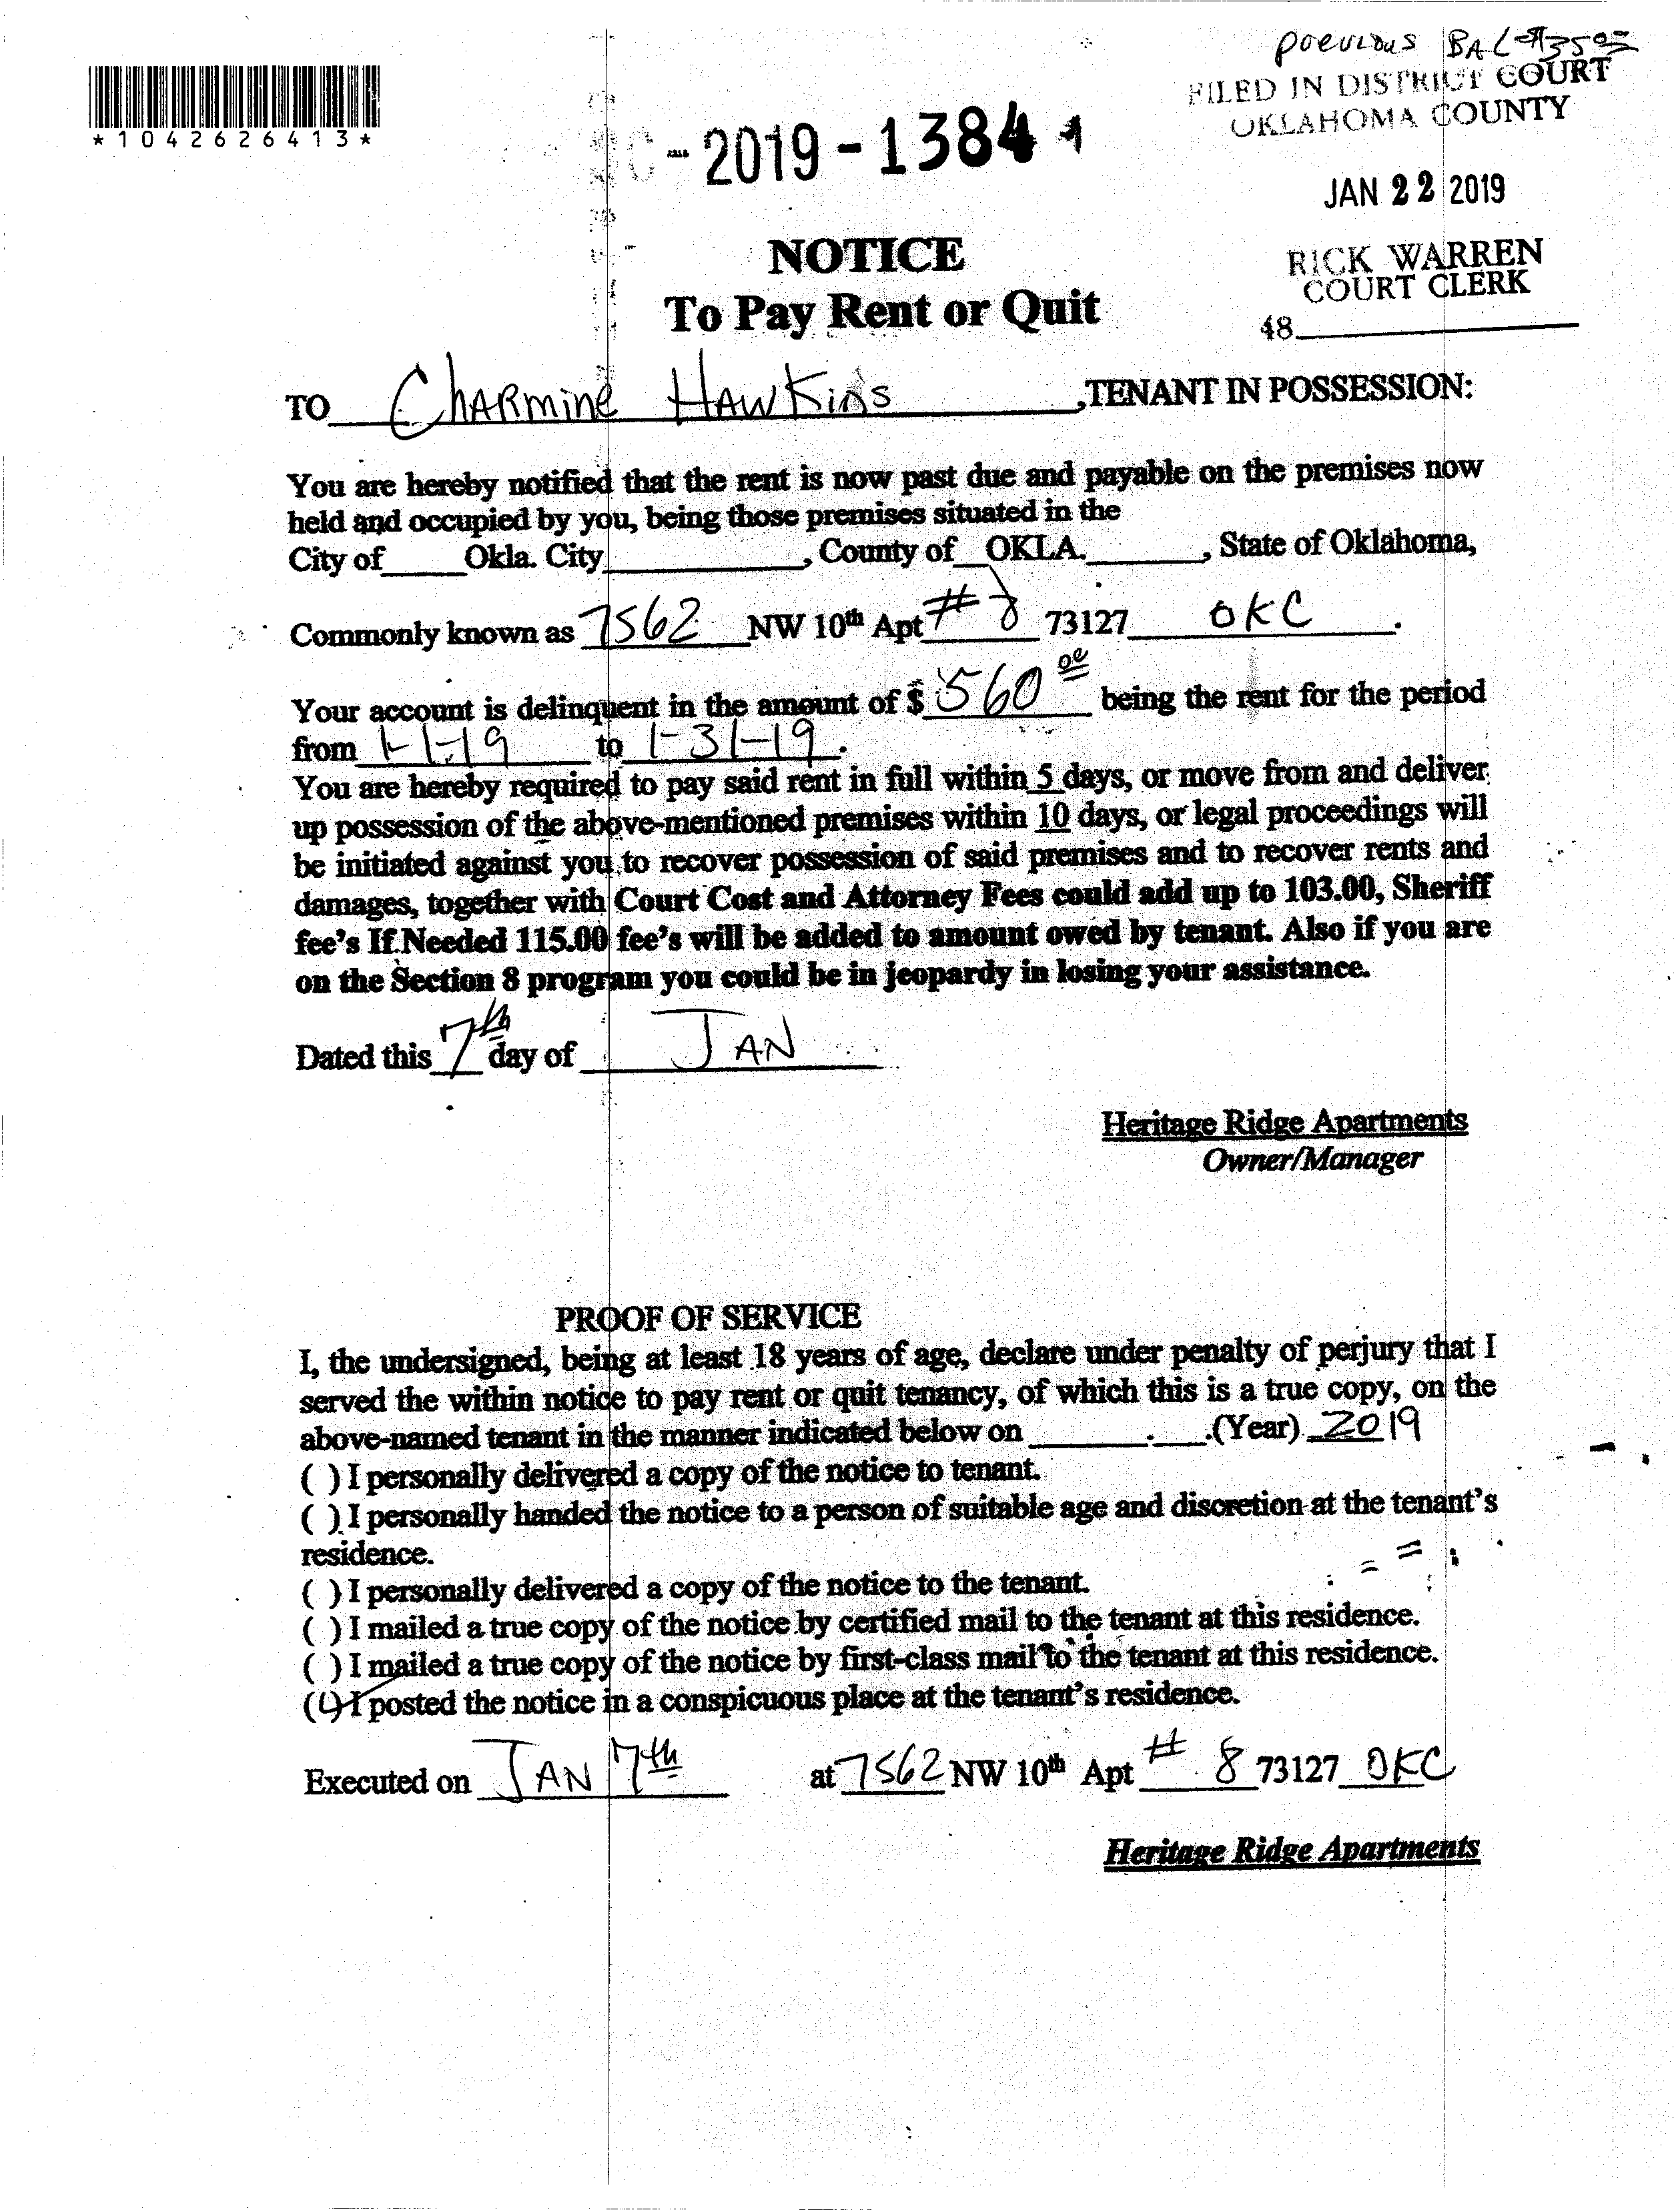 previous BAL $35.00
FILED IN DISTRICT COURT
OKLAHOMA COUNTY
*1042626413*
-2019-1384
JAN 22 2019
RICK WARREN
COURT CLERK
48
NOTICE
To Pay Rent or Quit
TO Charmine Hawkins ,TENANT IN POSSESSION:
You are hereby notified that the rent is now past due and payable on the premises now
held and occupied by you, being those premises situated in the
City of Okla. City , County of OKLA. , State of Oklahoma,
Commonly known as 7562 NW 10th Apt # 8 73127 OKC .
Your account is delinquent in the amount of $ 560 00 being the rent for the period
from 1-1-19 to 1-31-19.
You are hereby required to pay said rent in full within 5 days, or move from and deliver
up possession of the above-mentioned premises within 10 days, or legal proceedings will
be initiated against you to recover possession of said premises and to recover rents and
damages, together with Court Cost and Attorney Fees could add up to 103.00, Sheriff
fee's If Needed 115.00 fee's will be added to amount owed by tenant. Also if you are
on the Section 8 program you could be in jeopardy in losing your assistance.
Dated this 7th day of JAN
Heritage Ridge Apartments
Owner/Manager
PROOF OF SERVICE
I, the undersigned, being at least 18 years of age, declare under penalty of perjury that I
served the within notice to pay rent or quit tenancy, of which this is a true copy, on the
above-named tenant in the manner indicated below on . .(Year) 2019
( ) I personally delivered a copy of the notice to tenant.
( ) I personally handed the notice to a person of suitable age and discretion at the tenant's
residence.
( ) I personally delivered a copy of the notice to the tenant.
( ) I mailed a true copy of the notice by certified mail to the tenant at this residence.
( ) I mailed a true copy of the notice by first-class mail to the tenant at this residence.
(✓) I posted the notice in a conspicuous place at the tenant's residence.
Executed on JAN 7th at 7562 NW 10th Apt # 8 73127 OKC
Heritage Ridge Apartments